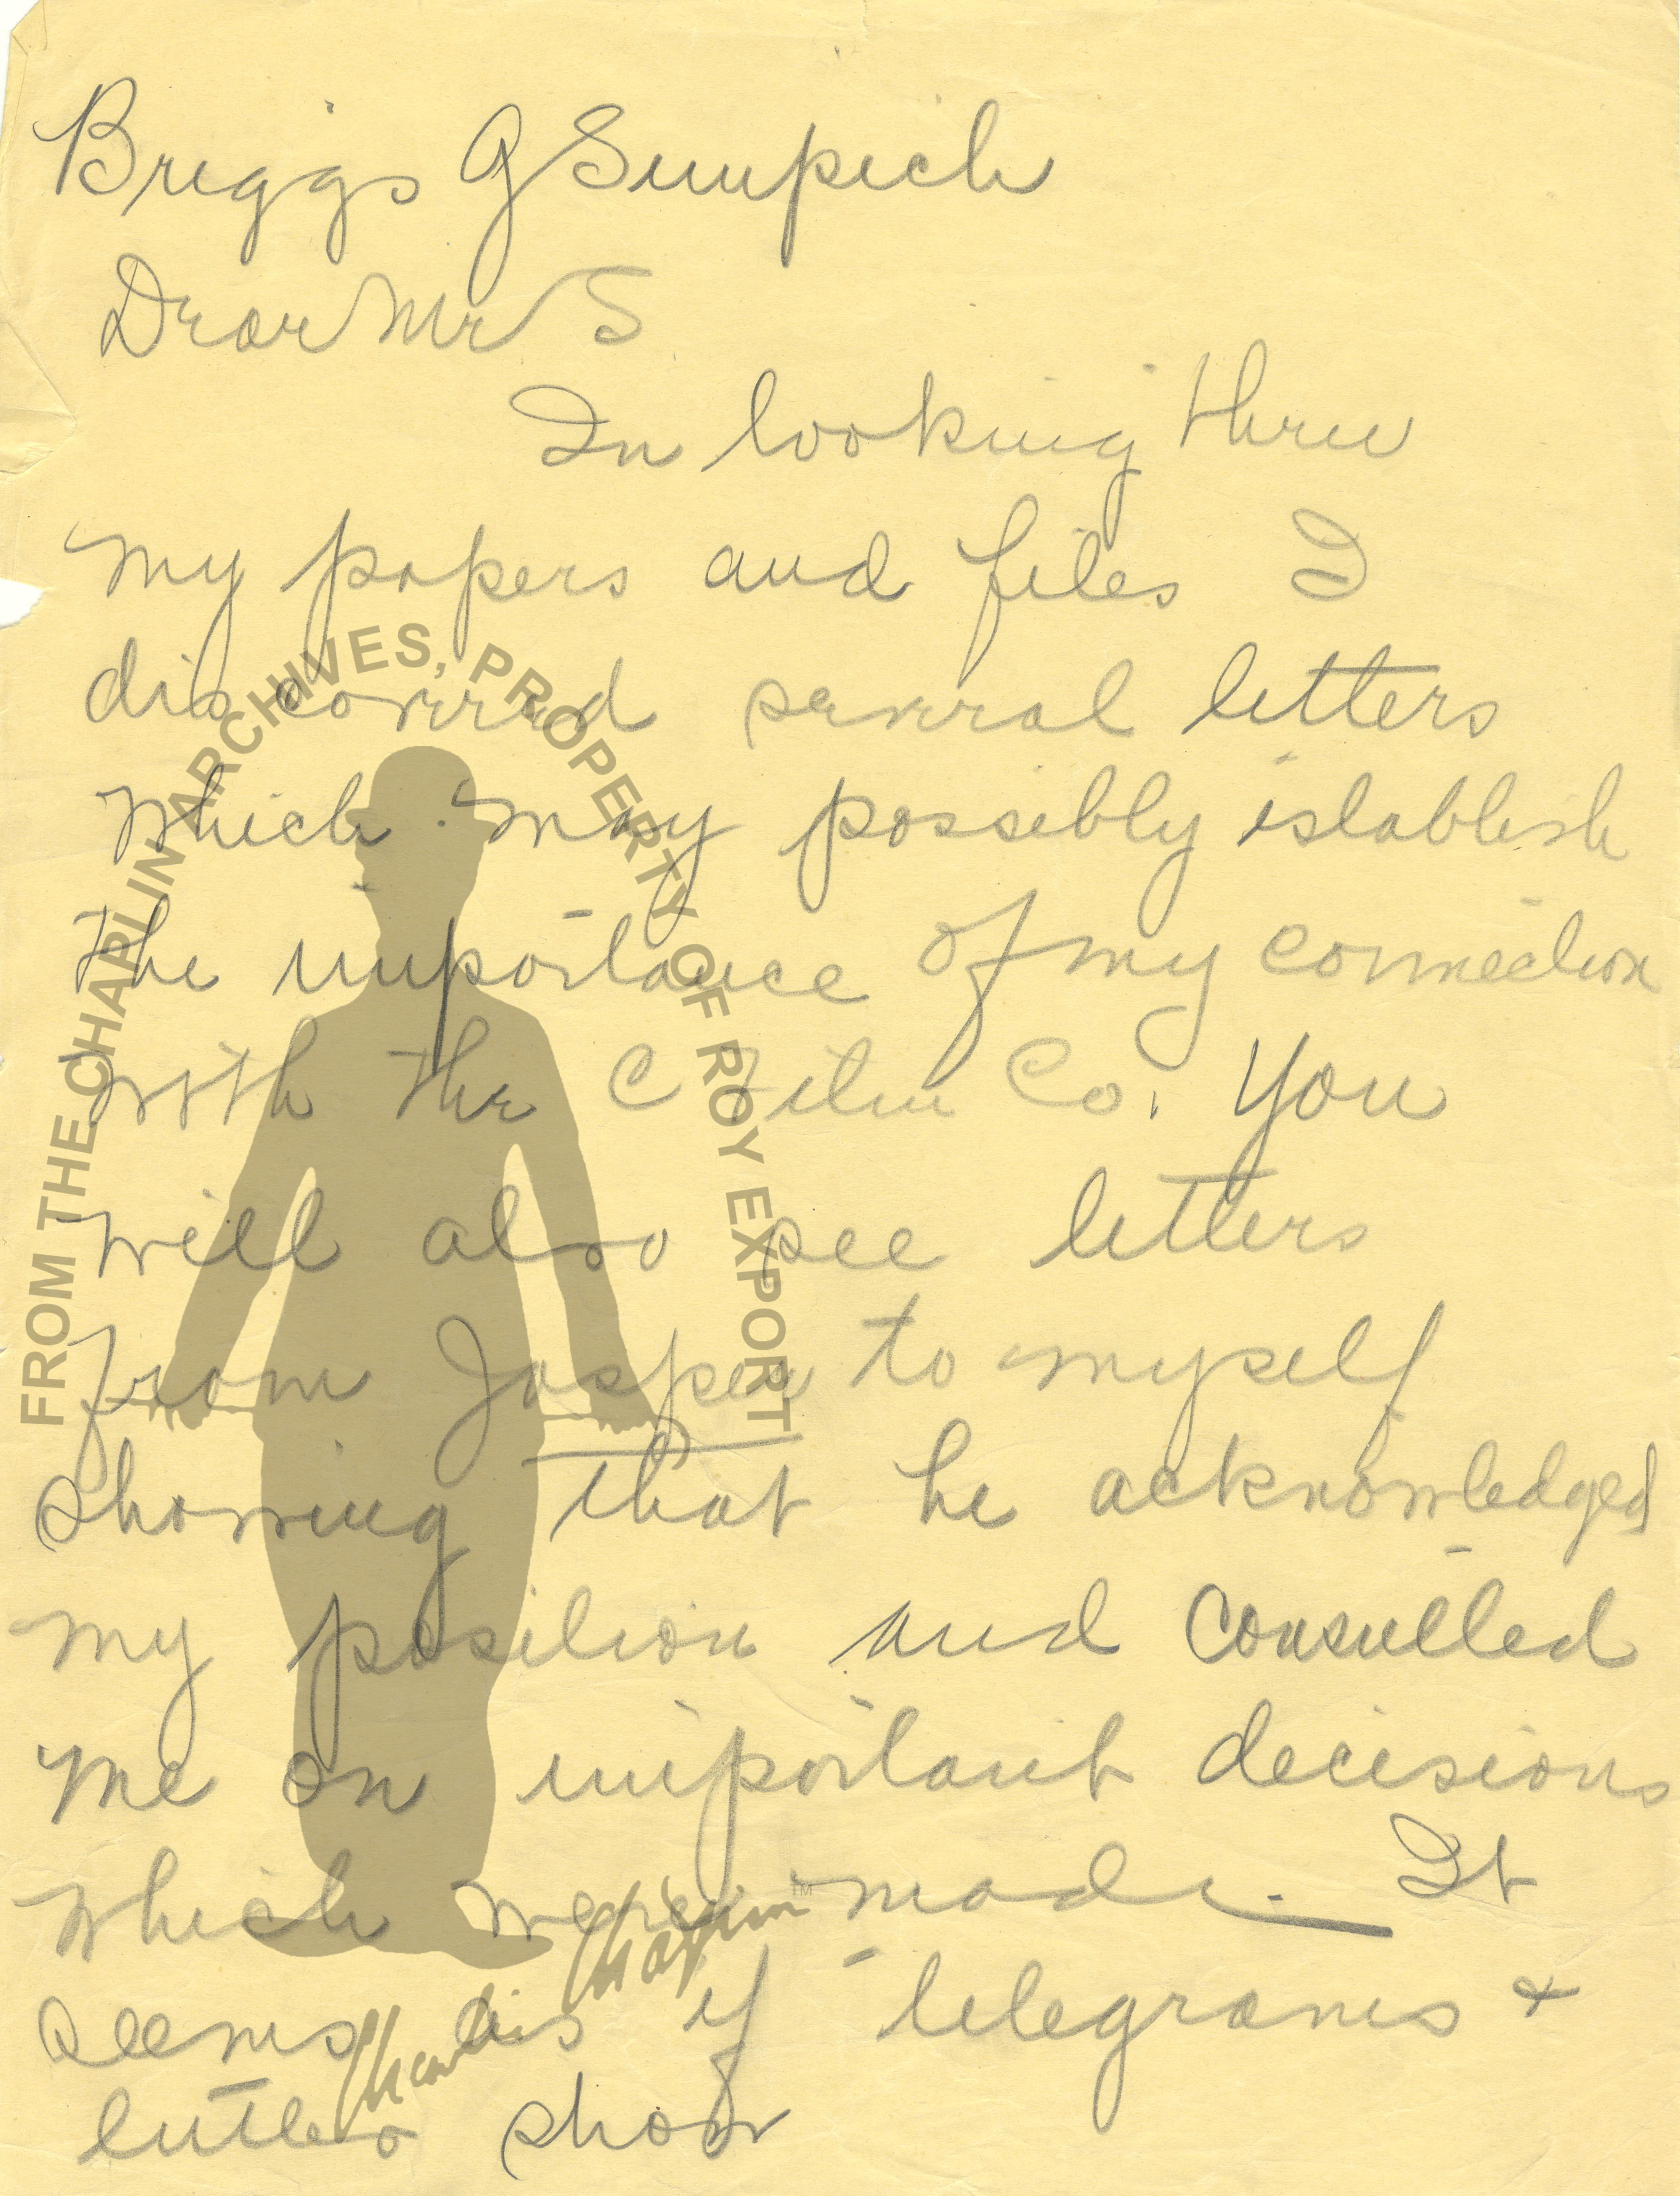 Briggs G Sumpich
Dear Mr S
In looking threw
my papers and files I
discovered several letters
which may possibly establish
the importance of my connection
with the C Film Co. You
will also see letters
from Jasper to myself
showing that he acknowledged
my position and consulted
me on important decisions
which were made. It
seems as if telegrams +
letters show
FROM THE CHAPLIN ARCHIVES, PROPERTY OF ROY EXPORT
Charlie Chaplin TM